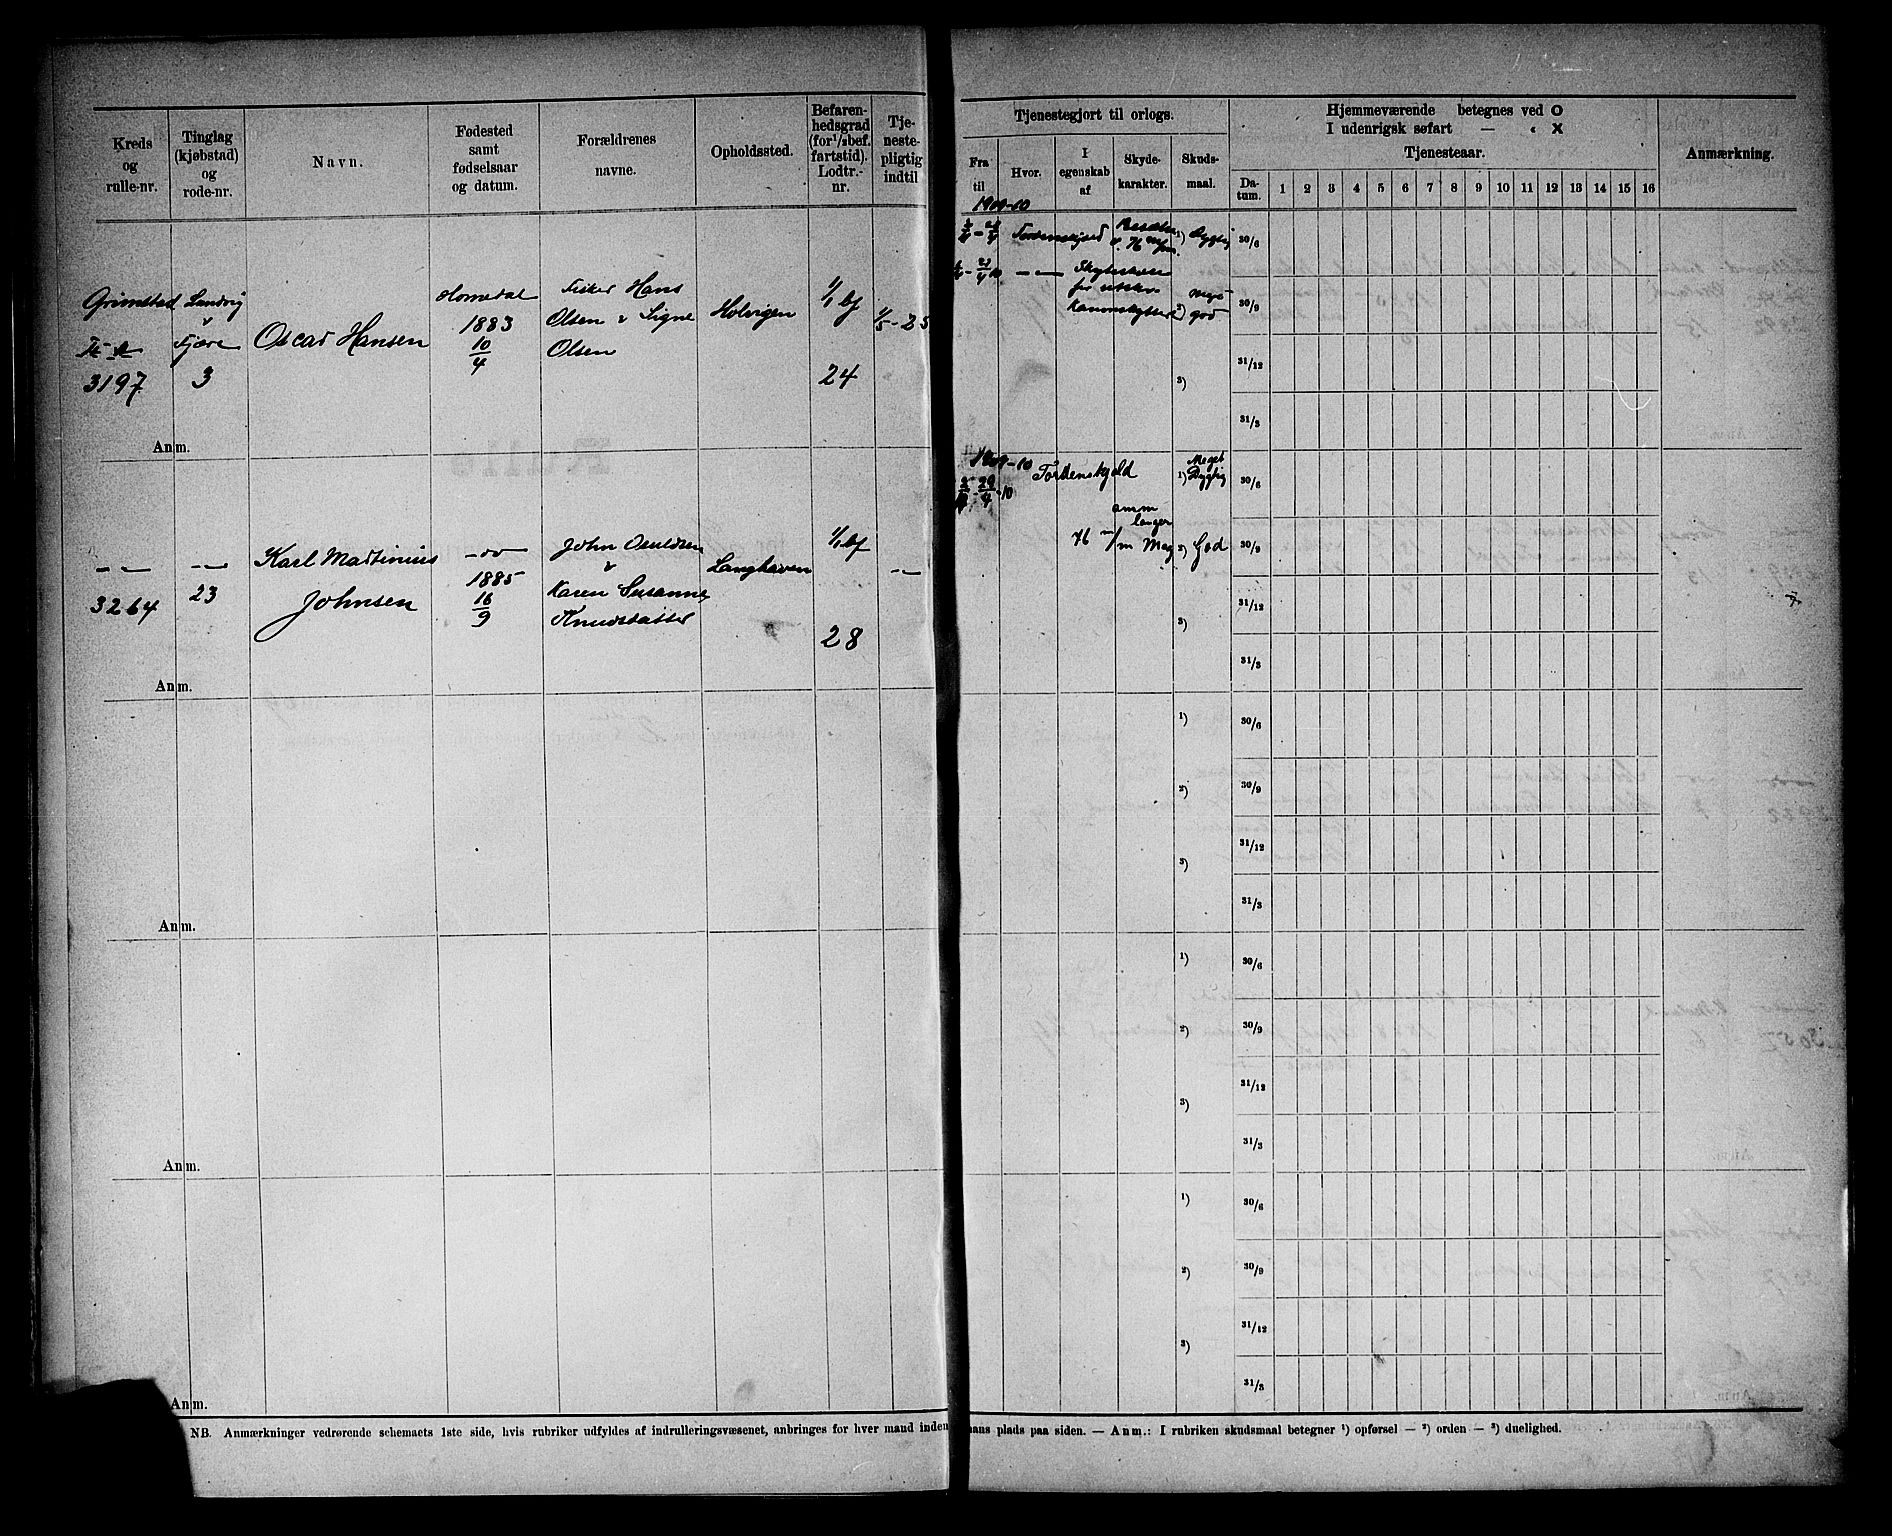 Kreds og rulle-nr.
Tinglag (kjøbstad) og rode-nr.
Navn.
Fødested samt fødselsaar og datum.
Forældrenes navne.
Opholdssted.
Befarenhedsgrad (for 1/2bef. fartstid). Lodtr.-nr.
Tjenestepligtig indtil
Tjenestegjort til orlogs.
Fra til
Hvor.
I egenskab af
Skydekarakter.
Skudsmaal.
Hjemmeværende betegnes ved O
I udenrigsk søfart — " X
Tjenesteaar.
Datum.
1 2 3 4 5 6 7 8 9 10 11 12 13 14 15 16
Anmærkning.
Grimstad
3197
Landvig
v
Fjære
3
Oscar Hansen
Homedal
1883
10/4
Fisker Hans
Olsen & Signe
Olsen
Holvigen
1/1 bf
24
1/5-25
1909-10
Tordenskjold
1) Dygtig
2) Meget god
3)
30/6
30/9
31/12
31/3
Anm.
— —
3264
— —
23
Karl Martinius
Johnsen
-do-
1885
16/9
John
&
Karen Susanne
Knudsdatter
Langhaven
1/1 bf
28
— —
1909-10
29/4-10
Tordenskjold
amm
langer
76 m/m Mag
1) Meget Dygtig
2) God
3)
30/6
30/9
31/12
31/3
Anm.
1)
2)
3)
30/6
30/9
31/12
31/3
Anm.
1)
2)
3)
30/6
30/9
31/12
31/3
Anm.
1)
2)
3)
30/6
30/9
31/12
31/3
Anm.
NB. Anmærkninger vedrørende schemaets 1ste side, hvis rubriker udfyldes af indrulleringsvæsenet, anbringes for hver mand inden hans plads paa siden. — Anm.: I rubriken skudsmaal betegner 1) opførsel — 2) orden — 3) duelighed.